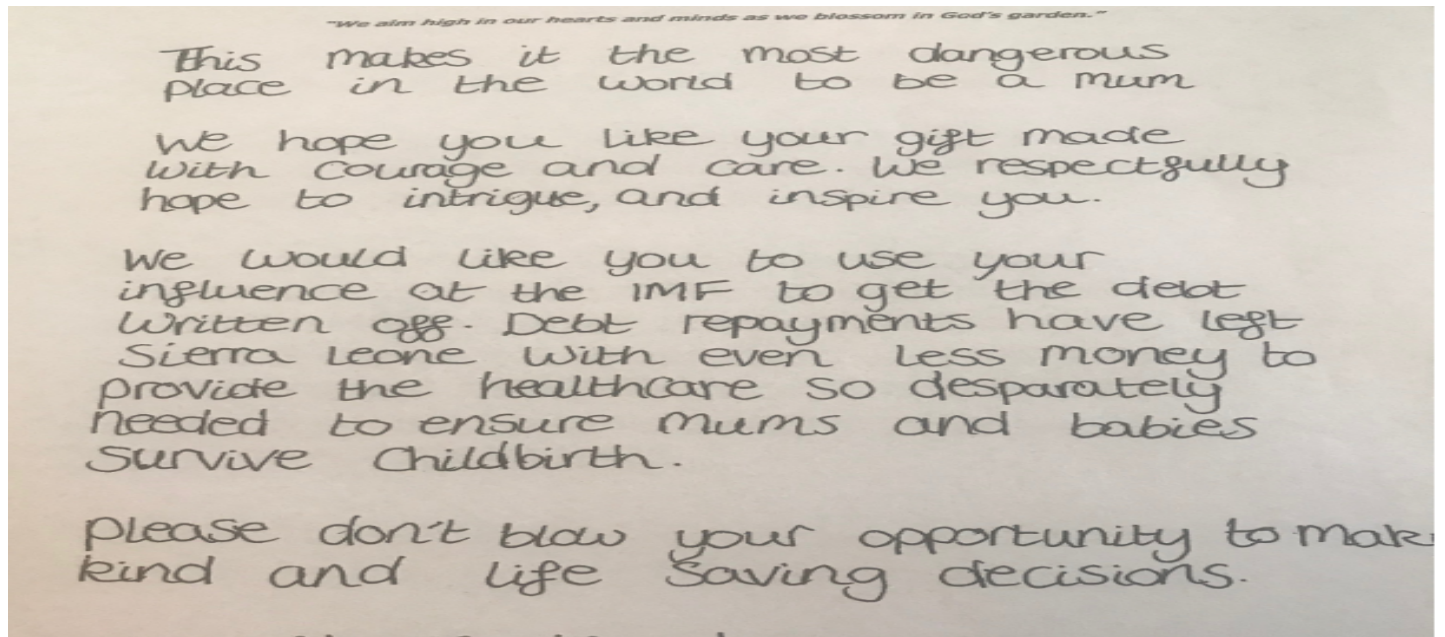 "We aim high in our hearts and minds as we blossom in God's garden."
This makes it the most dangerous
place in the world to be a mum
We hope you like your gift made
with courage and care. We respectfully
hope to intrigue, and inspire you.
We would like you to use your
influence at the IMF to get the debt
written off. Debt repayments have left
Sierra Leone with even less money to
provide the healthcare so desparately
needed to ensure mums and babies
survive Childbirth.
please don't blow your opportunity to mak
kind and life saving decisions.